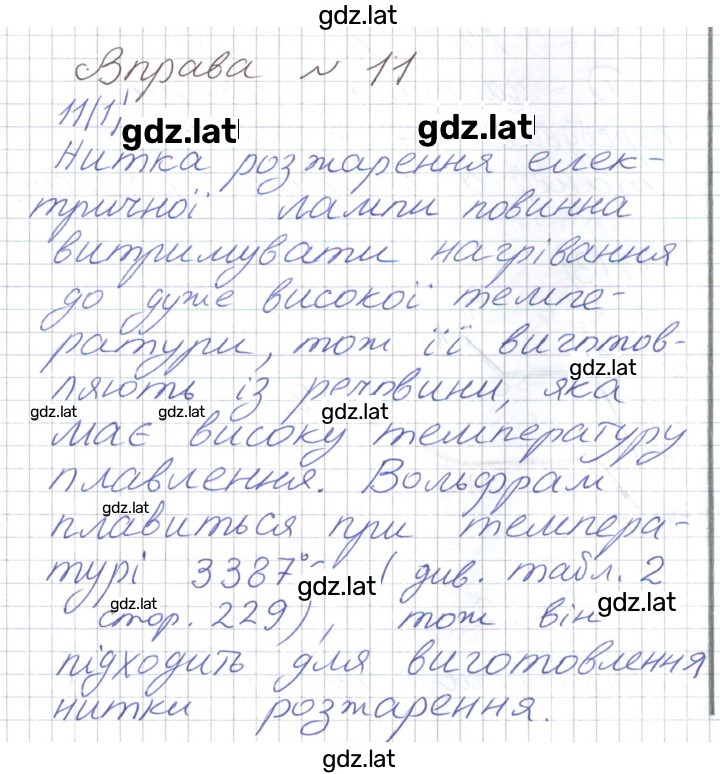 gdz.lat
Вправа ~ 11
11(1)
gdz.lat gdz.lat
Нитка розжарення елек-
тричної лампи повинна
витримувати нагрівання
до дуже високої темпе-
ратури, тож її виготов-
gdz.lat
ляють із речовини, яка
gdz.lat gdz.lat gdz.lat
має високу температуру
плавлення. Вольфрам
gdz.lat
плавиться при темпера-
турі 3387° (див. табл. 2
gdz.lat
gdz.lat gdz.lat
стор. 229), тож він
підходить для виготовлення
нитки розжарення.
gdz.lat